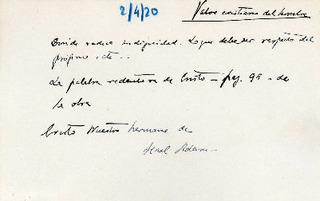 2/4/20
Valor cristiano del hombre
Donde radica su dignidad. Lo que debe ser respeto del
prójimo etc...
La palabra redentora de Cristo - pag. 95 - de
la obra
Cristo Nuestro hermano de
Karl Adam -